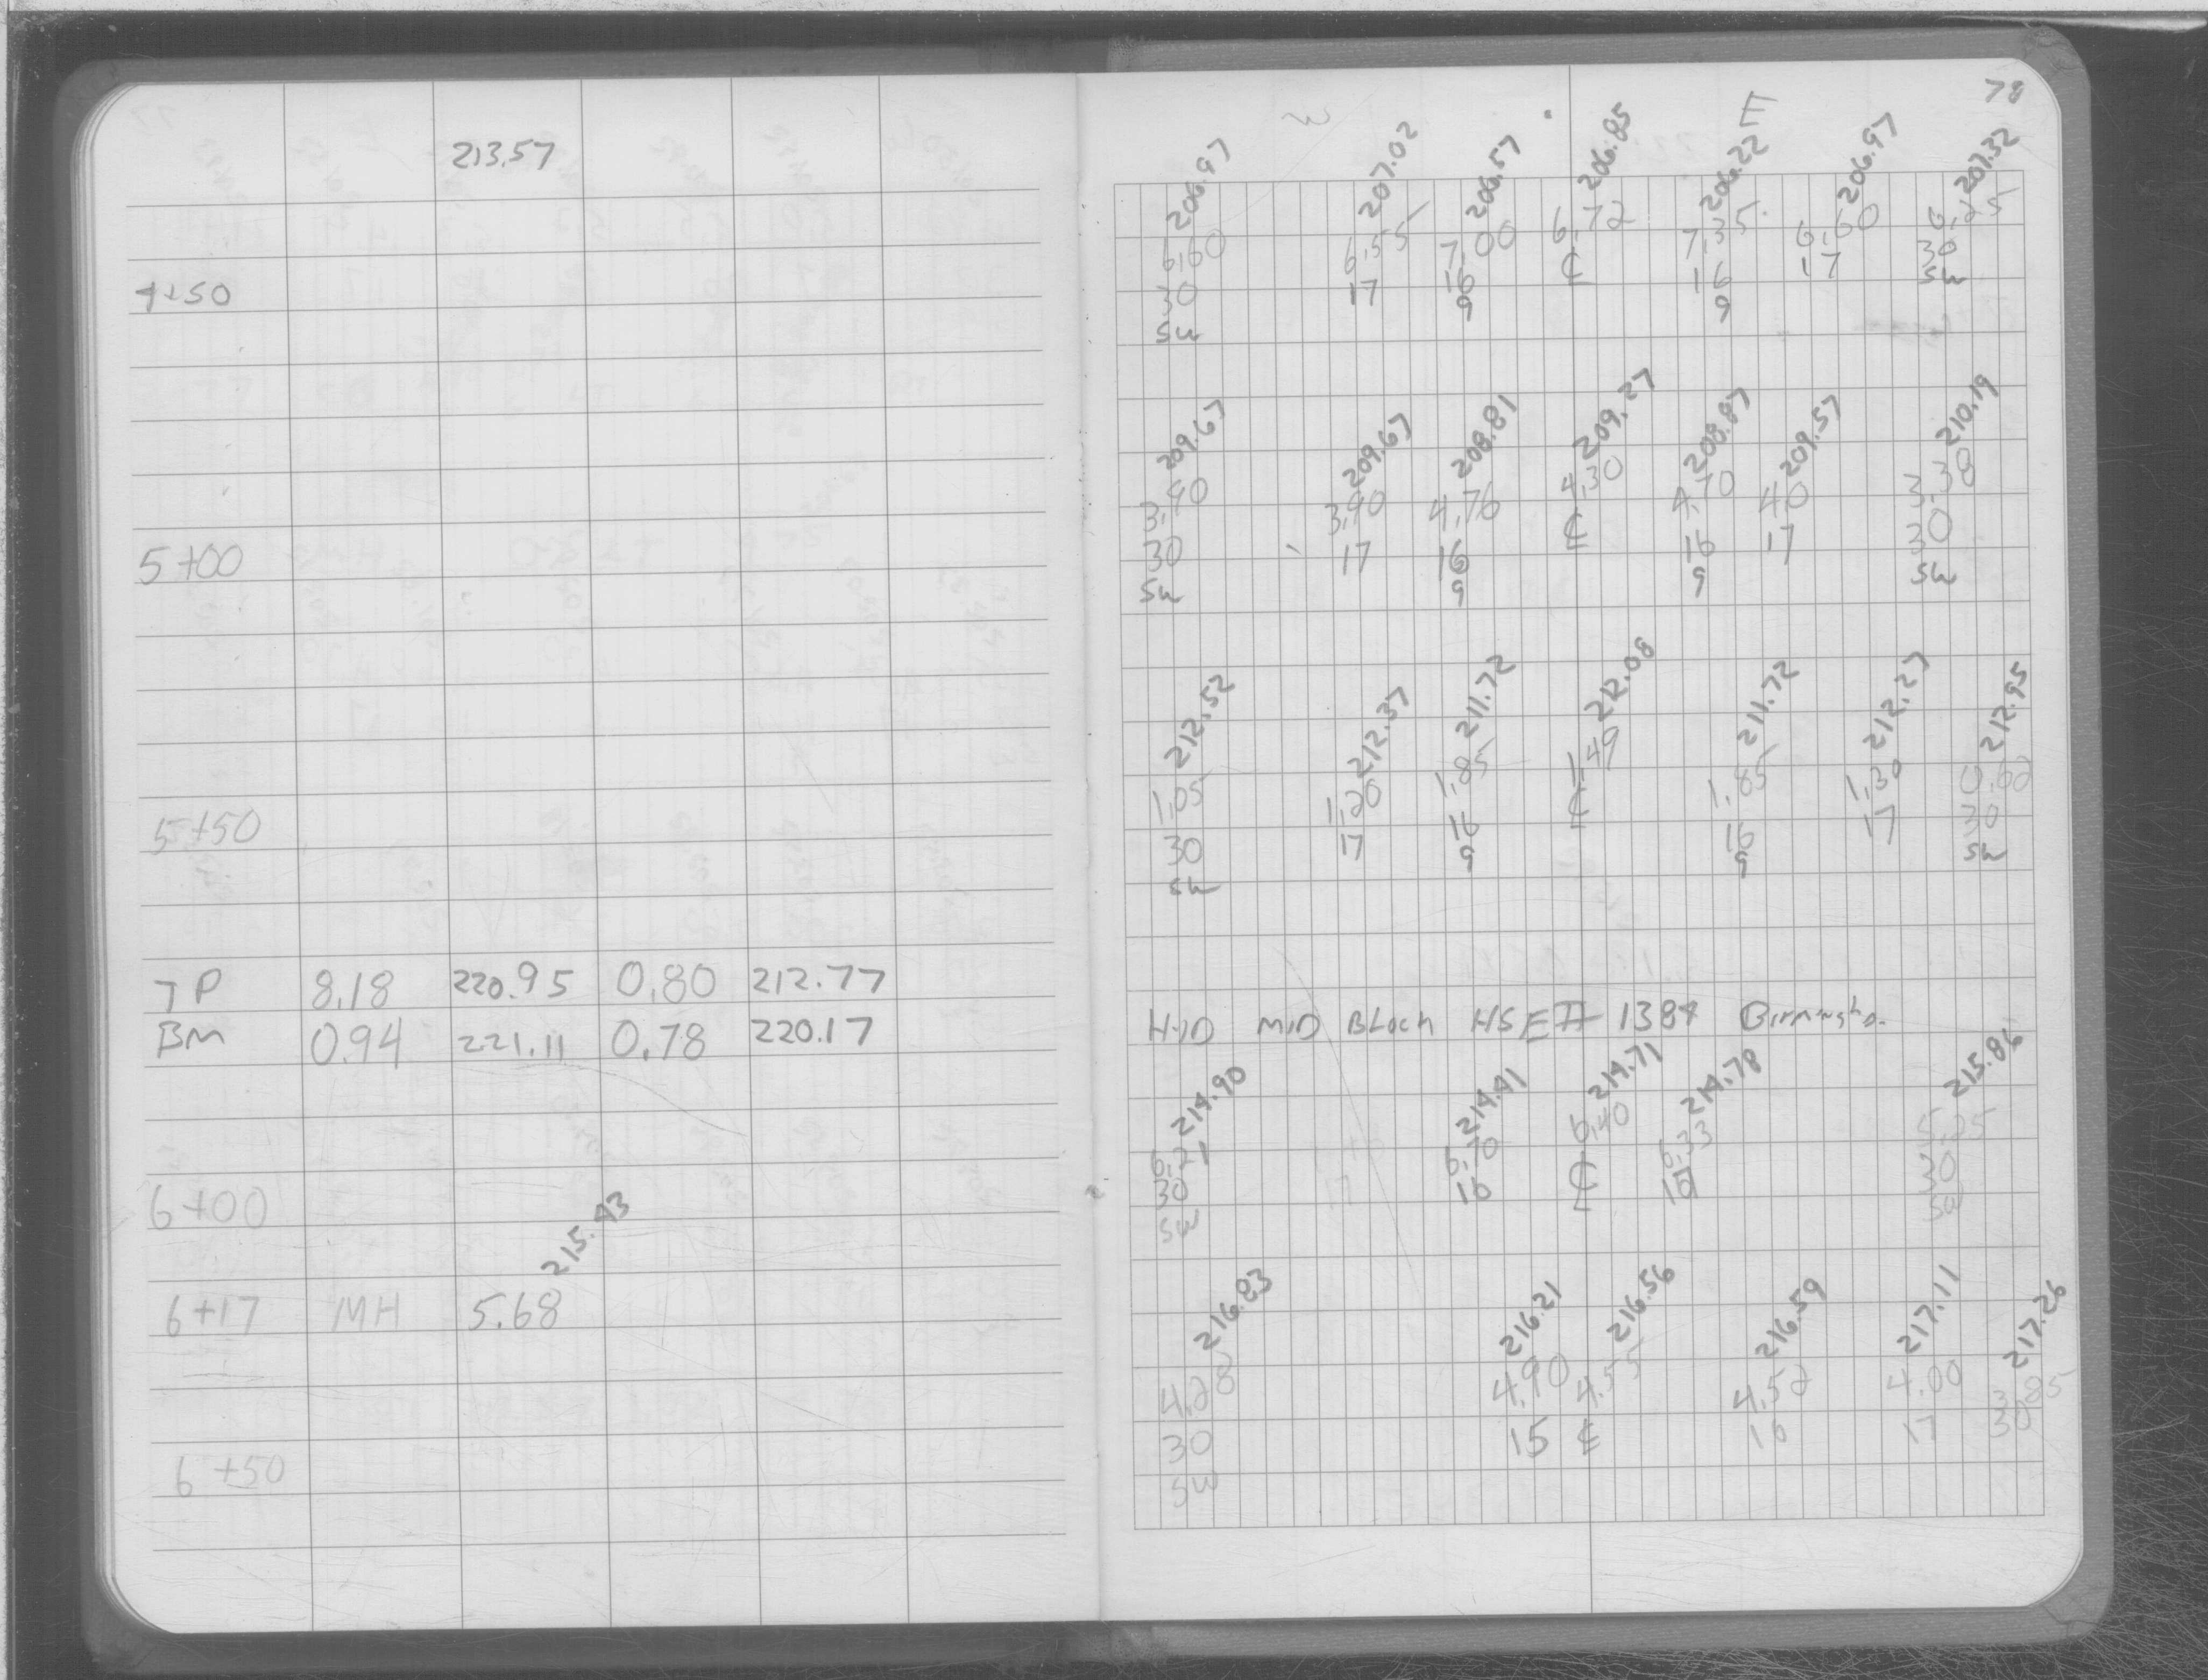 213.57
4+50
5+00
5+50
TP 8.18 220.95 0.80 212.77
BM 0.94 221.11 0.78 220.17
6+00
215.43
6+17 MH 5.68
6+50
78
W E
206.97 207.02 206.57 206.85 206.22 206.97 207.32
6.60 6.55 7.00 6.72 7.35 6.60 6.25
30 17 16 ℄ 16 17 30
SW 9 9 SW
209.67 209.67 208.81 209.27 208.87 209.57 210.19
3.90 3.90 4.76 4.30 4.70 4.0 3.38
30 17 16 ℄ 16 17 30
SW 9 9 SW
212.52 212.37 211.72 212.08 211.72 212.27 212.95
1.05 1.20 1.85 1.49 1.85 1.30 0.62
30 17 16 ℄ 16 17 30
SW 9 9 SW
HYD MID BLOCK HSE # 1384
214.90 214.41 214.71 214.78 215.86
6.21 6.70 6.40 6.33 5.25
30 17 16 ℄ 30
SW SW
216.83 216.21 216.56 216.59 217.11 217.26
4.28 4.90 4.55 4.52 4.00 3.85
30 15 ℄ 16 17 30
SW